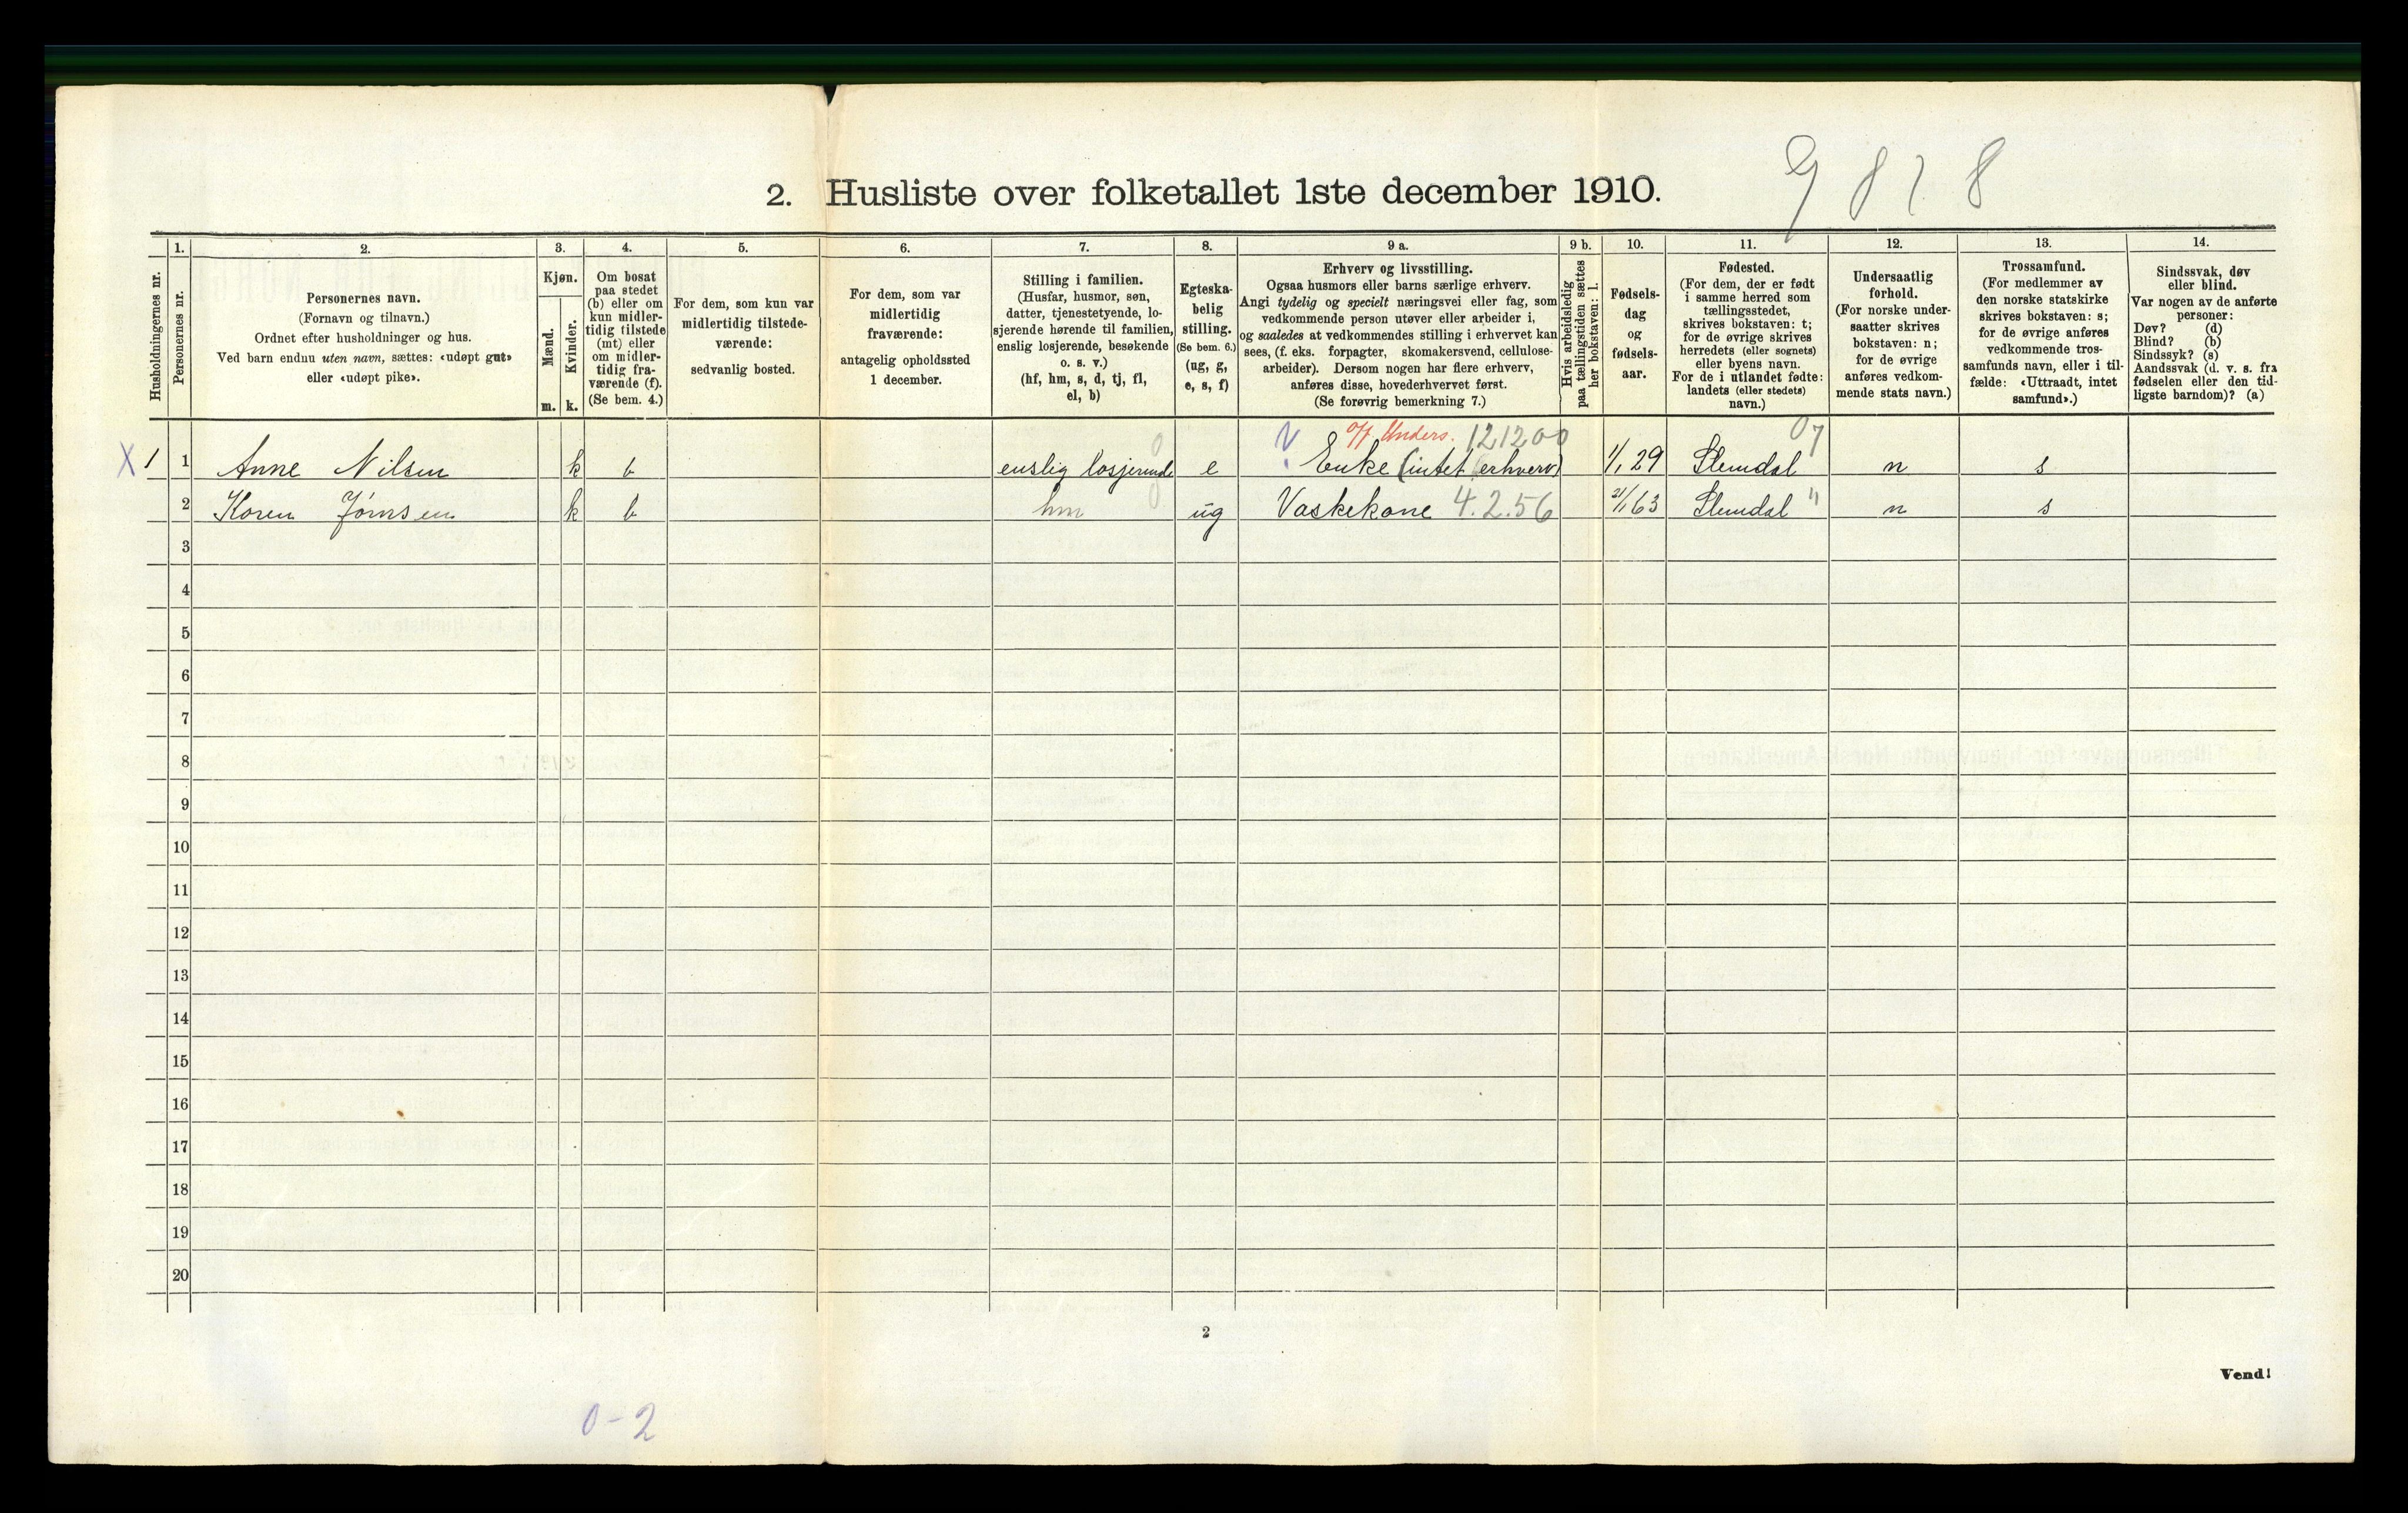 9 8 1 8
2. Husliste over folketallet 1ste december 1910.
Husholdningernes nr.
1.
Personernes nr.
2.
Personernes navn.
(Fornavn og tilnavn.)
Ordnet efter husholdninger og hus.
Ved barn endnu uten navn, sættes: «udøpt gut»
eller «udøpt pike».
3.
Kjøn.
Mænd.
m.
Kvinder.
k.
4.
Om bosat
paa stedet
(b) eller om
kun midler-
tidig tilstede
(mt) eller
om midler-
tidig fra-
værende (f).
(Se bem. 4.)
5.
For dem, som kun var
midlertidig tilstede-
værende:
sedvanlig bosted.
6.
For dem, som var
midlertidig
fraværende:
antagelig opholdssted
1 december.
7.
Stilling i familien.
(Husfar, husmor, søn,
datter, tjenestetyende, lo-
sjerende hørende til familien,
enslig losjerende, besøkende
o. s. v.)
(hf, hm, s, d, tj, fl,
el, b)
8.
Egteska-
belig
stilling.
(Se bem. 6.)
(ug, g,
e, s, f)
9 a.
Erhverv og livsstilling.
Ogsaa husmors eller barns særlige erhverv.
Angi tydelig og specielt næringsvei eller fag, som
vedkommende person utøver eller arbeider i,
og saaledes at vedkommendes stilling i erhvervet kan
sees, (f. eks. forpagter, skomakersvend, cellulose-
arbeider). Dersom nogen har flere erhverv,
anføres disse, hovederhvervet først.
(Se forøvrig bemerkning 7.)
9 b.
Hvis arbeidsledig
paa tællingstiden sættes
her bokstaven: l.
10.
Fødsels-
dag
og
fødsels-
aar.
11.
Fødested.
(For dem, der er født
i samme herred som
tællingsstedet,
skrives bokstaven: t;
for de øvrige skrives
herredets (eller sognets)
eller byens navn.
For de i utlandet fødte:
landets (eller stedets)
navn.)
12.
Undersaatlig
forhold.
(For norske under-
saatter skrives
bokstaven: n;
for de øvrige
anføres vedkom-
mende stats navn.)
13.
Trossamfund.
(For medlemmer av
den norske statskirke
skrives bokstaven: s;
for de øvrige anføres
vedkommende tros-
samfunds navn, eller i til-
fælde: «Uttraadt, intet
samfund».)
14.
Sindssvak, døv
eller blind.
Var nogen av de anførte
personer:
Døv? (d)
Blind? (b)
Sindssyk? (s)
Aandssvak (d. v. s. fra
fødselen eller den tid-
ligste barndom)? (a)
0 off Unders. 121200 07
X 1 1 Anne Nilsen k b enslig losjerende e Enke (intet erhverv) 1/1 29 Slemdal n s
2 Karen Jørnsen k b hm 0 ug Vaskekone 4.2.56 21/1 63 Slemdal " n s
3
4
5
6
7
8
9
10
11
12
13
14
15
16
17
18
19
20
2
Vend!
0-2